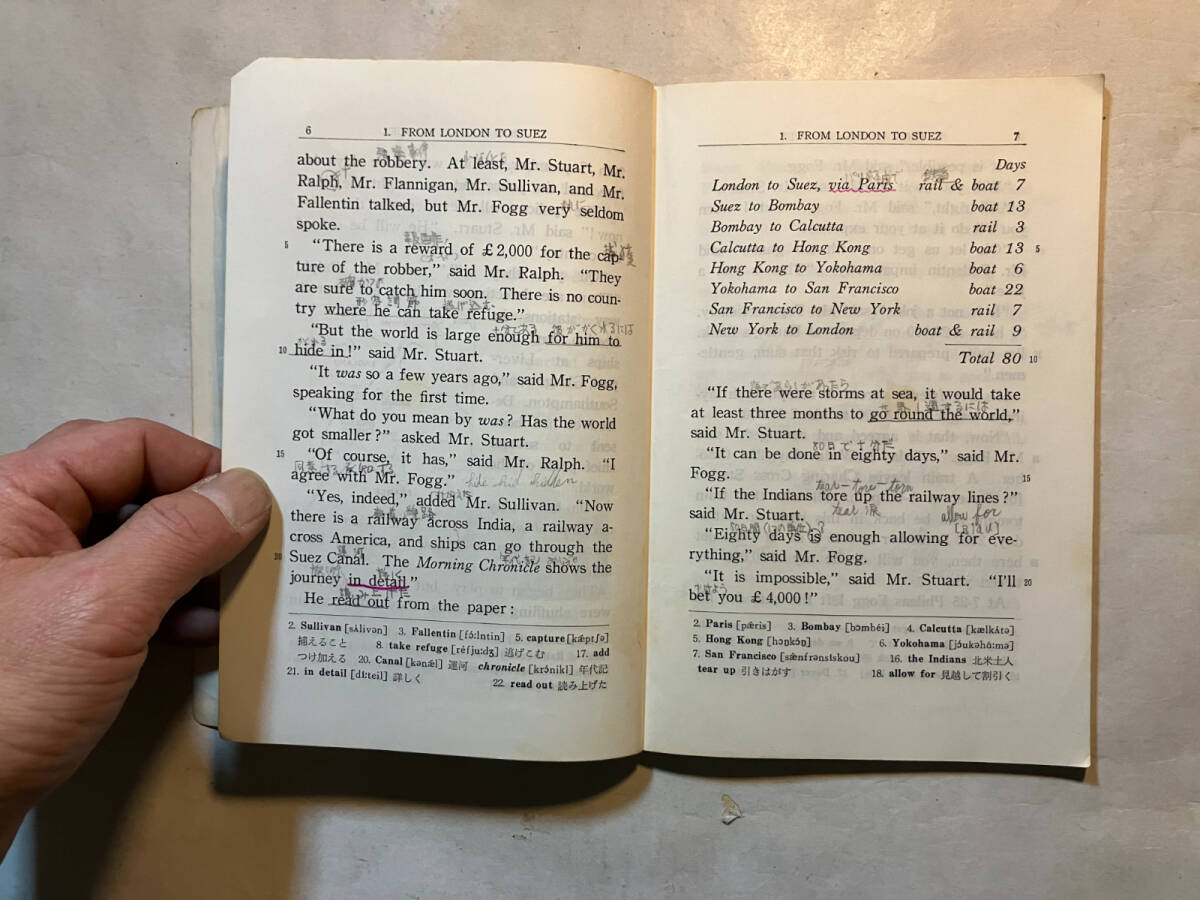 6 1. FROM LONDON TO SUEZ
about the robbery. At least, Mr. Stuart, Mr.
Ralph, Mr. Flannigan, Mr. Sullivan, and Mr.
Fallentin talked, but Mr. Fogg very seldom
spoke.
5 “There is a reward of £2,000 for the cap-
ture of the robber,” said Mr. Ralph. “They
are sure to catch him soon. There is no coun-
try where he can take refuge.”
“But the world is large enough for him to
10 hide in!” said Mr. Stuart.
“It was so a few years ago,” said Mr. Fogg,
speaking for the first time.
“What do you mean by was? Has the world
got smaller?” asked Mr. Stuart.
15 “Of course, it has,” said Mr. Ralph. “I
agree with Mr. Fogg.” hide hid hidden
“Yes, indeed,” added Mr. Sullivan. “Now
there is a railway across India, a railway a-
cross America, and ships can go through the
20 Suez Canal. The Morning Chronicle shows the
journey in detail.”
He read out from the paper:
2. Sullivan [sʌ́livən] 3. Fallentin [fɔ́:lntin] 5. capture [kǽptʃə]
捕えること 8. take refuge [réfju:dʒ] 逃げこむ 17. add
つけ加える 20. Canal [kənǽl] 運河 chronicle [krɔ́nikl] 年代記
21. in detail [dí:teil] 詳しく 22. read out 読み上げた
1. FROM LONDON TO SUEZ 7
Days
London to Suez, via Paris rail & boat 7
Suez to Bombay boat 13
Bombay to Calcutta rail 3
Calcutta to Hong Kong boat 13 5
Hong Kong to Yokohama boat 6
Yokohama to San Francisco boat 22
San Francisco to New York rail 7
New York to London boat & rail 9
Total 80 10
“If there were storms at sea, it would take
at least three months to go round the world,”
said Mr. Stuart.
80日で十分だ
“It can be done in eighty days,” said Mr.
Fogg. 15
tear-tore-torn
“If the Indians tore up the railway lines?”
said Mr. Stuart. tear 涙 allow for
“Eighty days is enough allowing for eve-
rything,” said Mr. Fogg.
“It is impossible,” said Mr. Stuart. “I’ll 20
bet you £4,000!”
2. Paris [pǽris] 3. Bombay [bɔmbéi] 4. Calcutta [kælkʌ́tə]
5. Hong Kong [hɔŋkɔ́ŋ] 6. Yokohama [jóukəhá:mə]
7. San Francisco [sænfrənsískou] 16. the Indians 北米土人
tear up 引きはがす 18. allow for 見越して割引く